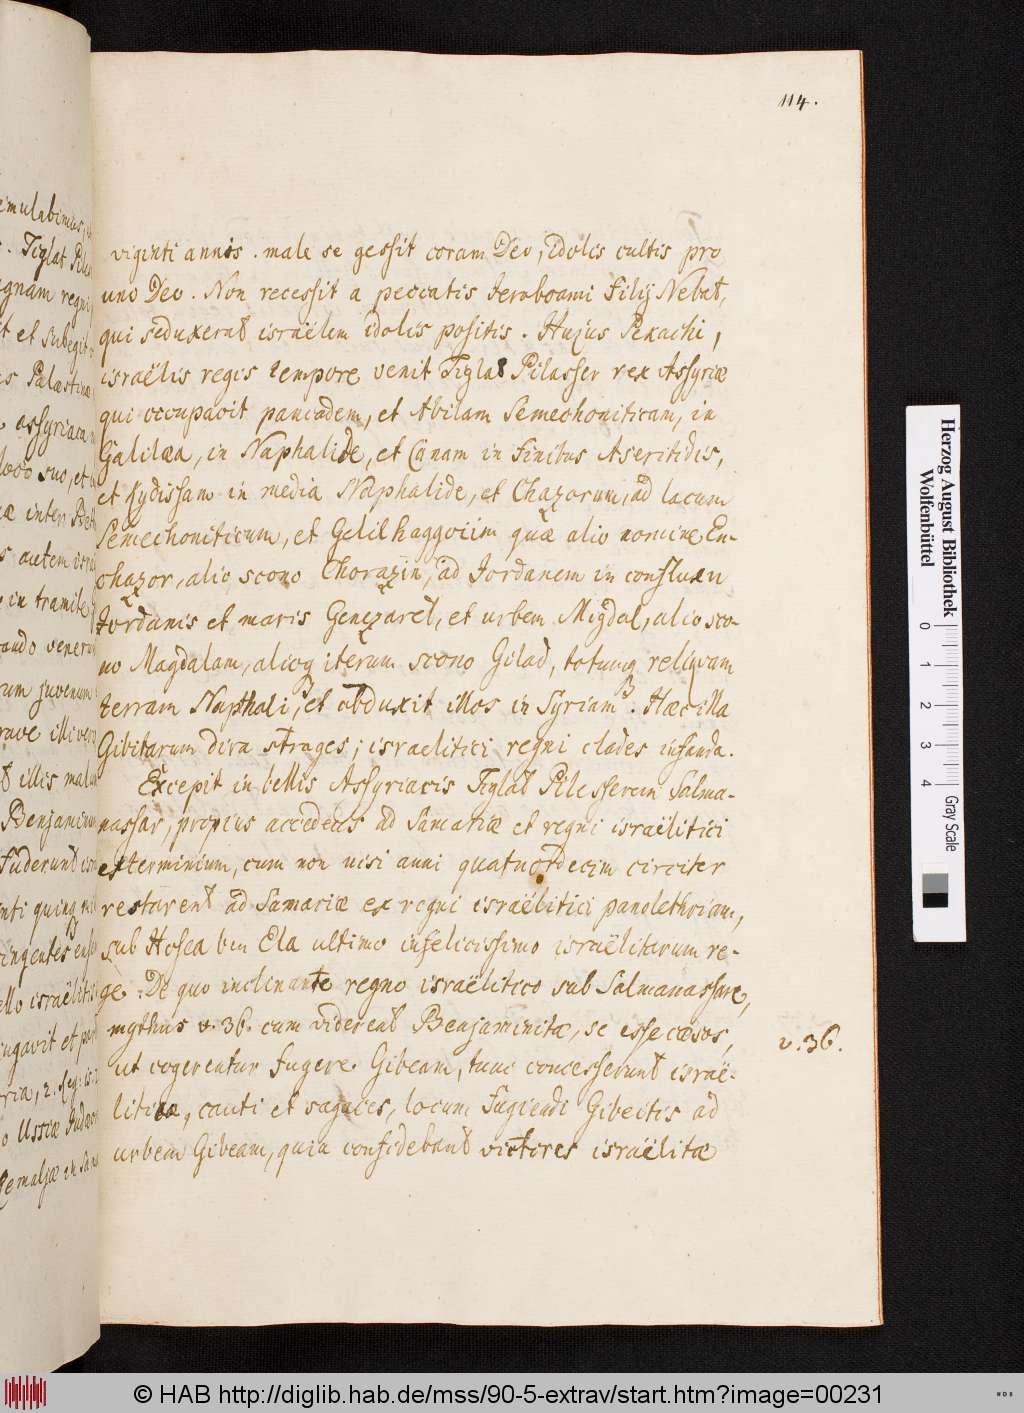 114.
viginti annis. male se gessit coram Deo, idolis cultis pro
uno Deo. Non recessit a peccatis Jeroboami Filij Nebat,
qui seduxerat israëlem idolis positis. Hujus Pekachi,
israëlis regis tempore venit Tiglat Pilasser rex Assyriæ
qui occupavit pancadem, et Abilam Semechoniticam, in
Galilæa, in Naphalide, et Canam in Finibus Aseritidis,
et Kydissam in media Naphalide, et Chazorum, ad lacum
Semechoniticum, et Gelil haggoiim quæ alio nomine En-
chazor, alio, scono Chorazin, ad Jordanem in confluxu
Jordanis et maris Genezaret, et urbem Migdal, alio sco-
no Magdalam, alioq iterum scono Gilad, totamq reliquam
terram Napthali, et abduxit illos in Syriam. Hæc illa
Gibitarum dira strages; israelitici regni clades infanda.
Excepit in bellis Assyriacis Tiglat Pilesserem Salma-
nassar, propius accedens ad Samariæ et regni israëlitici
exterminium, cum non nisi anni quatuordecim circiter
restarent ad Samariæ ex regni israëlitici panolethriam,
sub Hosea ben Ela ultimo infelicissimo israëlitarum re-
ge. De quo inclinante regno israëlitico sub Salmanassare,
mythus v. 36. cum viderent Benjaminitæ, se esse cæsos,
ut cogerentur fugere Gibeam, tunc concesserunt israë-
litæ, cauti et sagaces, locum Fugiendi Gibeitis ad
urbem Gibeam, quia confidebant victores israëlitæ
v. 36.
emulabimus,
Tiglat Pile
regni
et subegit
Palæstinæ
assyriaca
suo, et
inter Beth
autem isra
in tramite
venerun
rum juvenum
illi vero
illis malum
Benjaminum
Fuderunt isra
quinq mil
israëlitis
ugavit et
Ussiæ Judæor
Remaljæ in Sama
Herzog August Bibliothek
Wolfenbüttel
0 1 2 3 4
Gray Scale
© HAB http://diglib.hab.de/mss/90-5-extrav/start.htm?image=00231
WDB